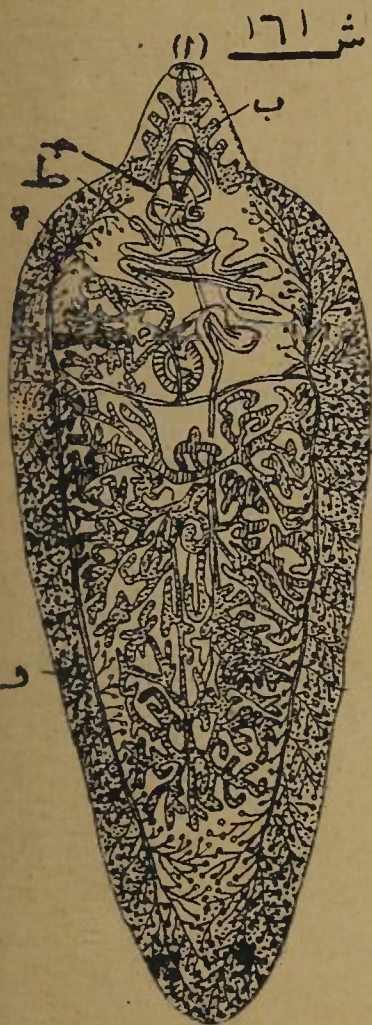 ش ١٦١
(١)
ب
ج
ط
ه
و